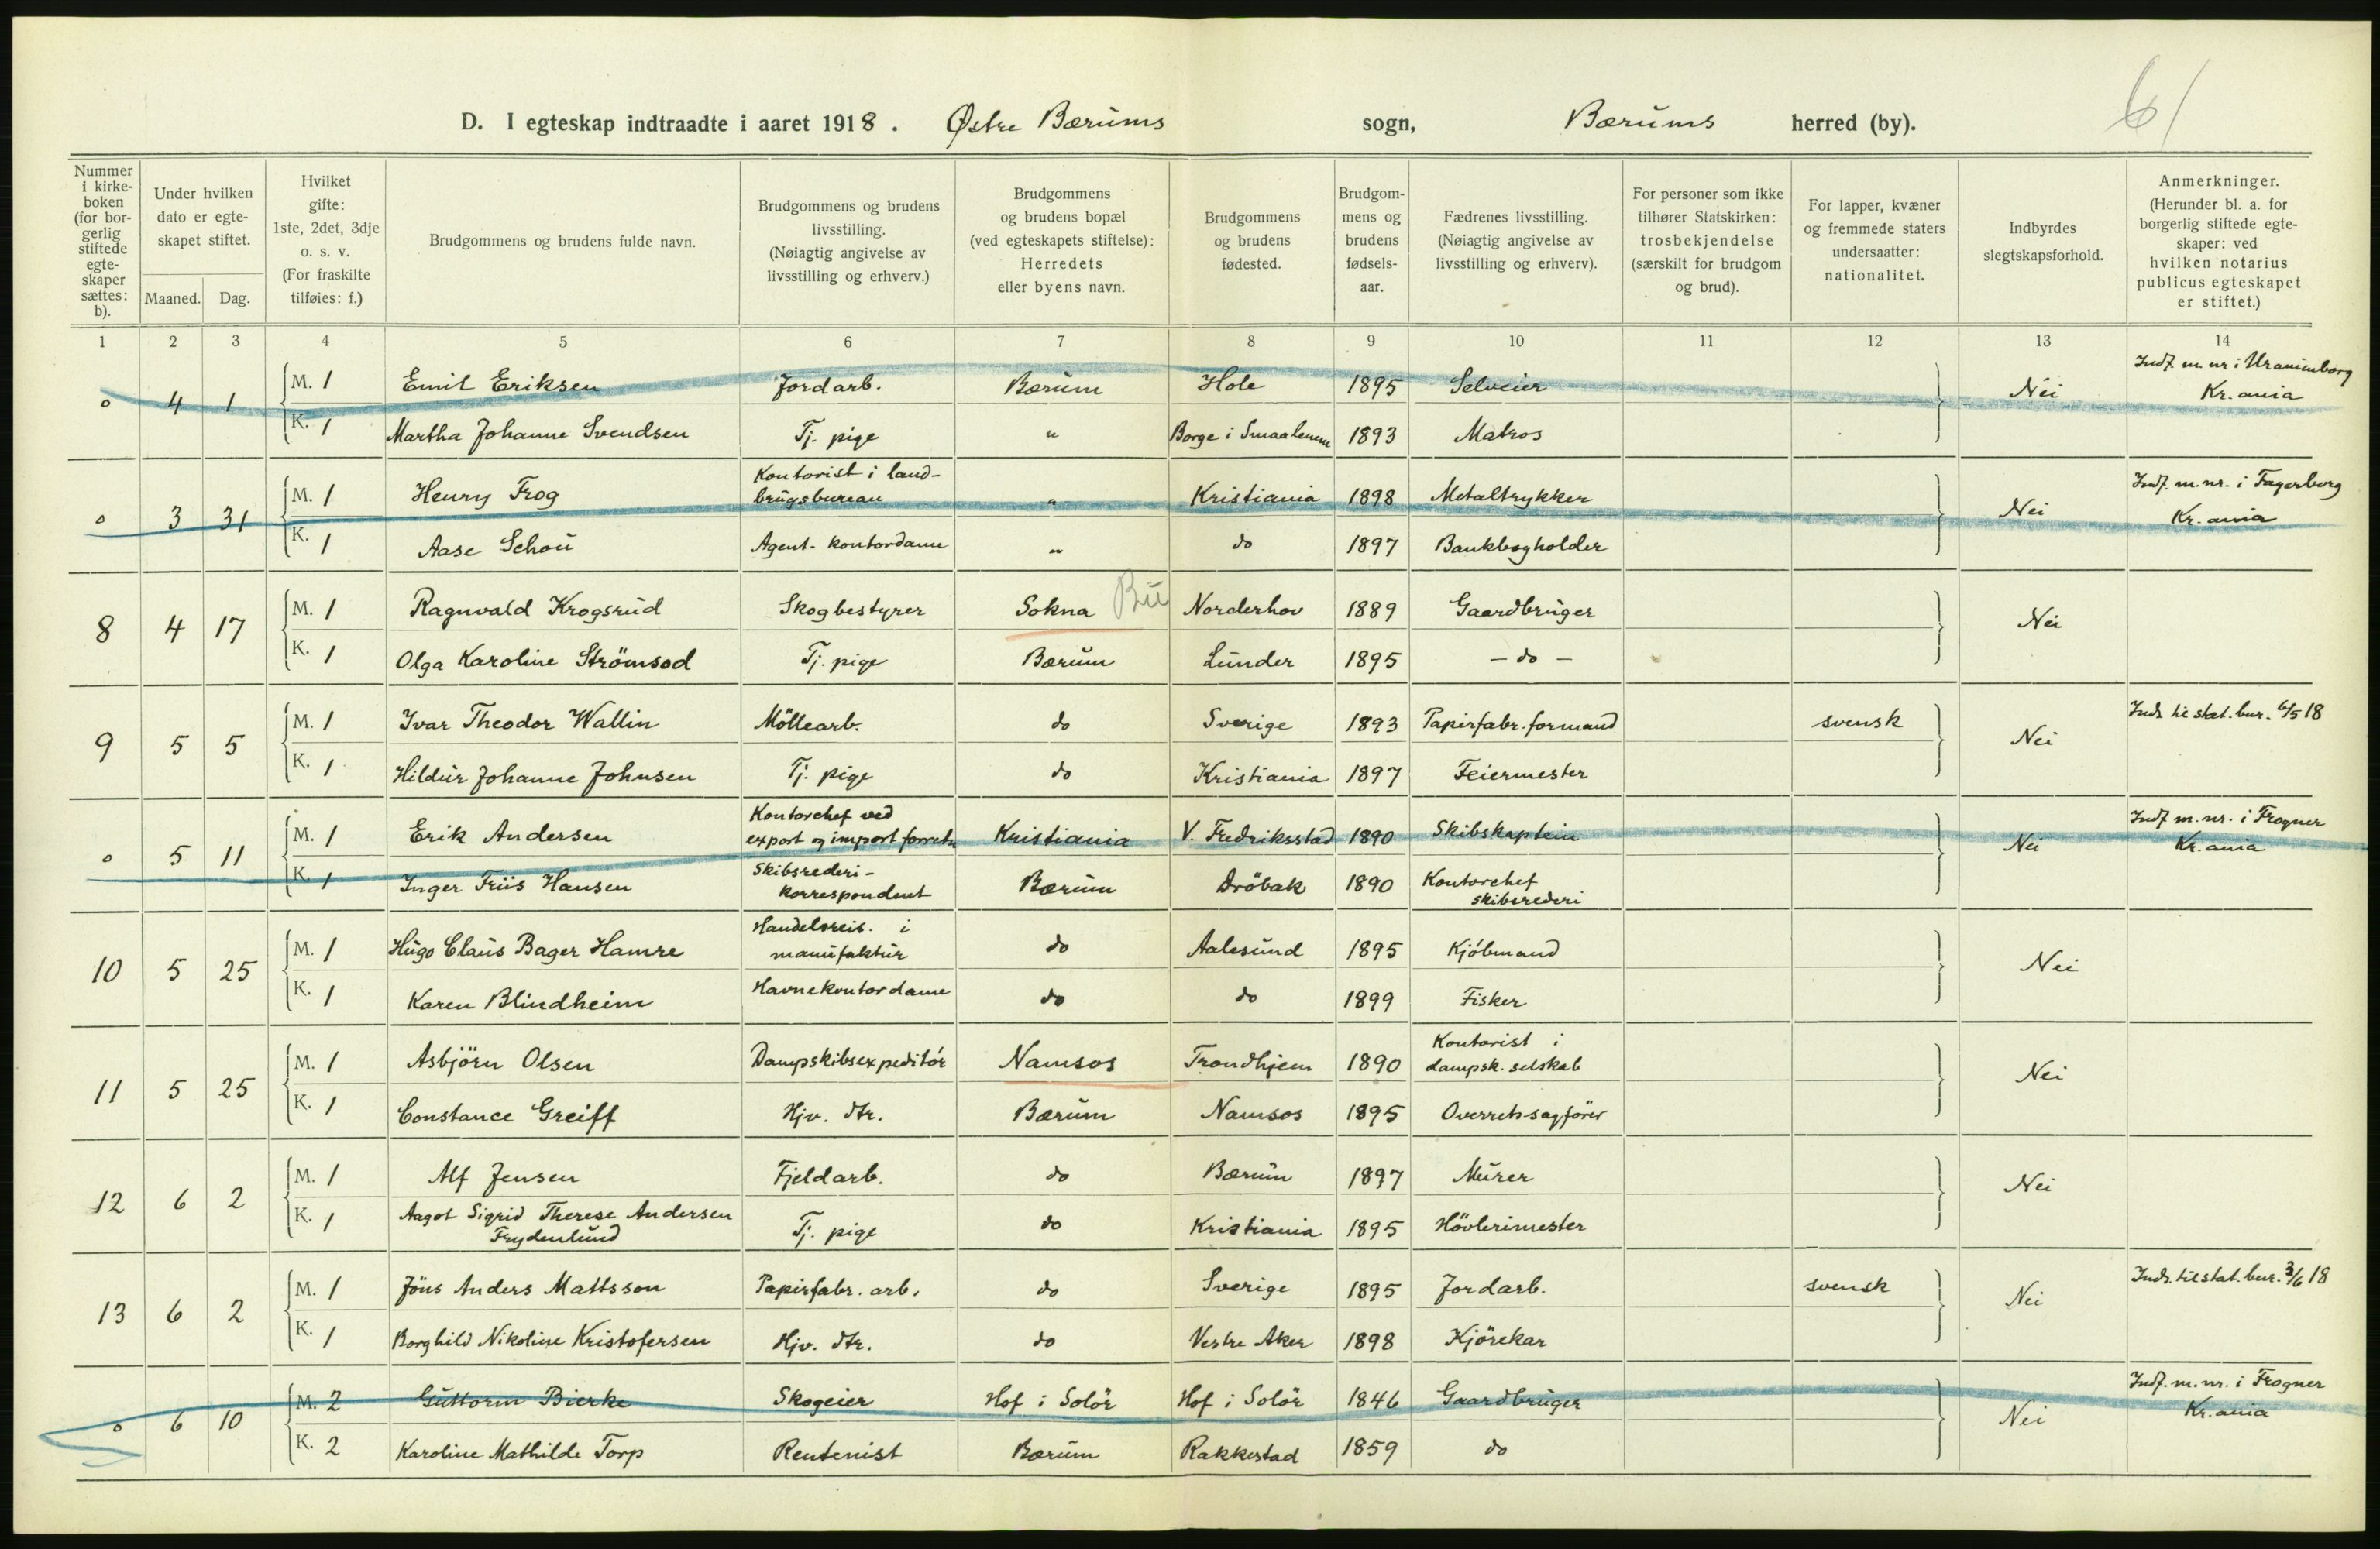 61
D. I egteskap indtraadte i aaret 1918. Østre Bærums sogn, Bærums herred (by).
Nummer i kirkeboken (for borgerlig stiftede egteskaper sættes: b).
Under hvilken dato er egteskapet stiftet.
Maaned. Dag.
Hvilket gifte: 1ste, 2det, 3dje o. s. v. (For fraskilte tilføies: f.)
Brudgommens og brudens fulde navn.
Brudgommens og brudens livsstilling. (Nøiagtig angivelse av livsstilling og erhverv.)
Brudgommens og brudens bopæl (ved egteskapets stiftelse): Herredets eller byens navn.
Brudgommens og brudens fødested.
Brudgommens og brudens fødselsaar.
Fædrenes livsstilling. (Nøiagtig angivelse av livsstilling og erhverv).
For personer som ikke tilhører Statskirken: trosbekjendelse (særskilt for brudgom og brud).
For lapper, kvæner og fremmede staters undersaatter: nationalitet.
Indbyrdes slegtskapsforhold.
Anmerkninger. (Herunder bl. a. for borgerlig stiftede egteskaper: ved hvilken notarius publicus egteskapet er stiftet.)
1 2 3 4 5 6 7 8 9 10 11 12 13 14
o 4 1 M. 1 Emil Eriksen Jordarb. Bærum Hole 1895 Selveier Nei Indf. m. nr i Uranienborg Kr.ania
K. 1 Martha Johanne Svendsen Tj. pige " Borge i Smaalenene 1893 Matros
o 3 31 M. 1 Henry Frog Kontorist i landbrugsbureau " Kristiania 1898 Metaltrykker Nei Indf. m. nr. i Fagerborg Kr.ania
K. 1 Aase Schou Agent-kontordame " do 1897 Bankbogholder
8 4 17 M. 1 Ragnvald Krogsrud Skogbestyrer Sokna Bu Norderhov 1889 Gaardbruger Nei
K. 1 Olga Karoline Strömsod Tj. pige Bærum Lunder 1895 - do -
9 5 5 M. 1 Ivar Theodor Wallin Möllearb. do Sverige 1893 Papirfabr. formand svensk Nei Inds. til stat. bur. 6/5 18
K. 1 Hildur Johanne Johnsen Tj. pige do Kristiania 1897 Feiermester
o 5 11 M. 1 Erik Andersen Kontorchef ved export og import forretn Kristiania V. Fredriksstad 1890 Skibskaptein Nei Indf m. nr. i Frogner Kr.ania
K. 1 Inger Friis Hansen Skibsrederi-korrespondent Bærum Dröbak 1890 Kontorchef skibsrederi
10 5 25 M. 1 Hugo Claus Bager Hamre Handelsreis. i manufaktur do Aalesund 1895 Kjöbmand Nei
K. 1 Karen Blindheim Havnekontordame do do 1899 Fisker
11 5 25 M. 1 Asbjörn Olsen Dampskibsexpeditör Namsos Trondhjem 1890 Kontorist i dampsk. selskab Nei
K. 1 Constance Greiff Hjv. dtr. Bærum Namsos 1895 Overretssagförer
12 6 2 M. 1 Alf Jensen Fjeldarb. do Bærum 1897 Murer Nei
K. 1 Aagot Sigrid Therese Andersen Frydenlund Tj. pige do Kristiania 1895 Hövlerimester
13 6 2 M. 1 Jöns Anders Mattsson Papirfabr. arb. do Sverige 1895 Jordarb. svensk Nei Inds. til stat. bur. 3/6 18
K. 1 Borghild Nikoline Kristofersen Hjv. dtr. do Vestre Aker 1898 Kjörekar
o 6 10 M. 2 Guttorm Bierke Skogeier Hof i Solör Hof i Solör 1846 Gaardbruger Nei Indf. m. nr. i Frogner Kr.ania
K. 2 Karoline Mathilde Torp Rentenist Bærum Rakkestad 1859 do